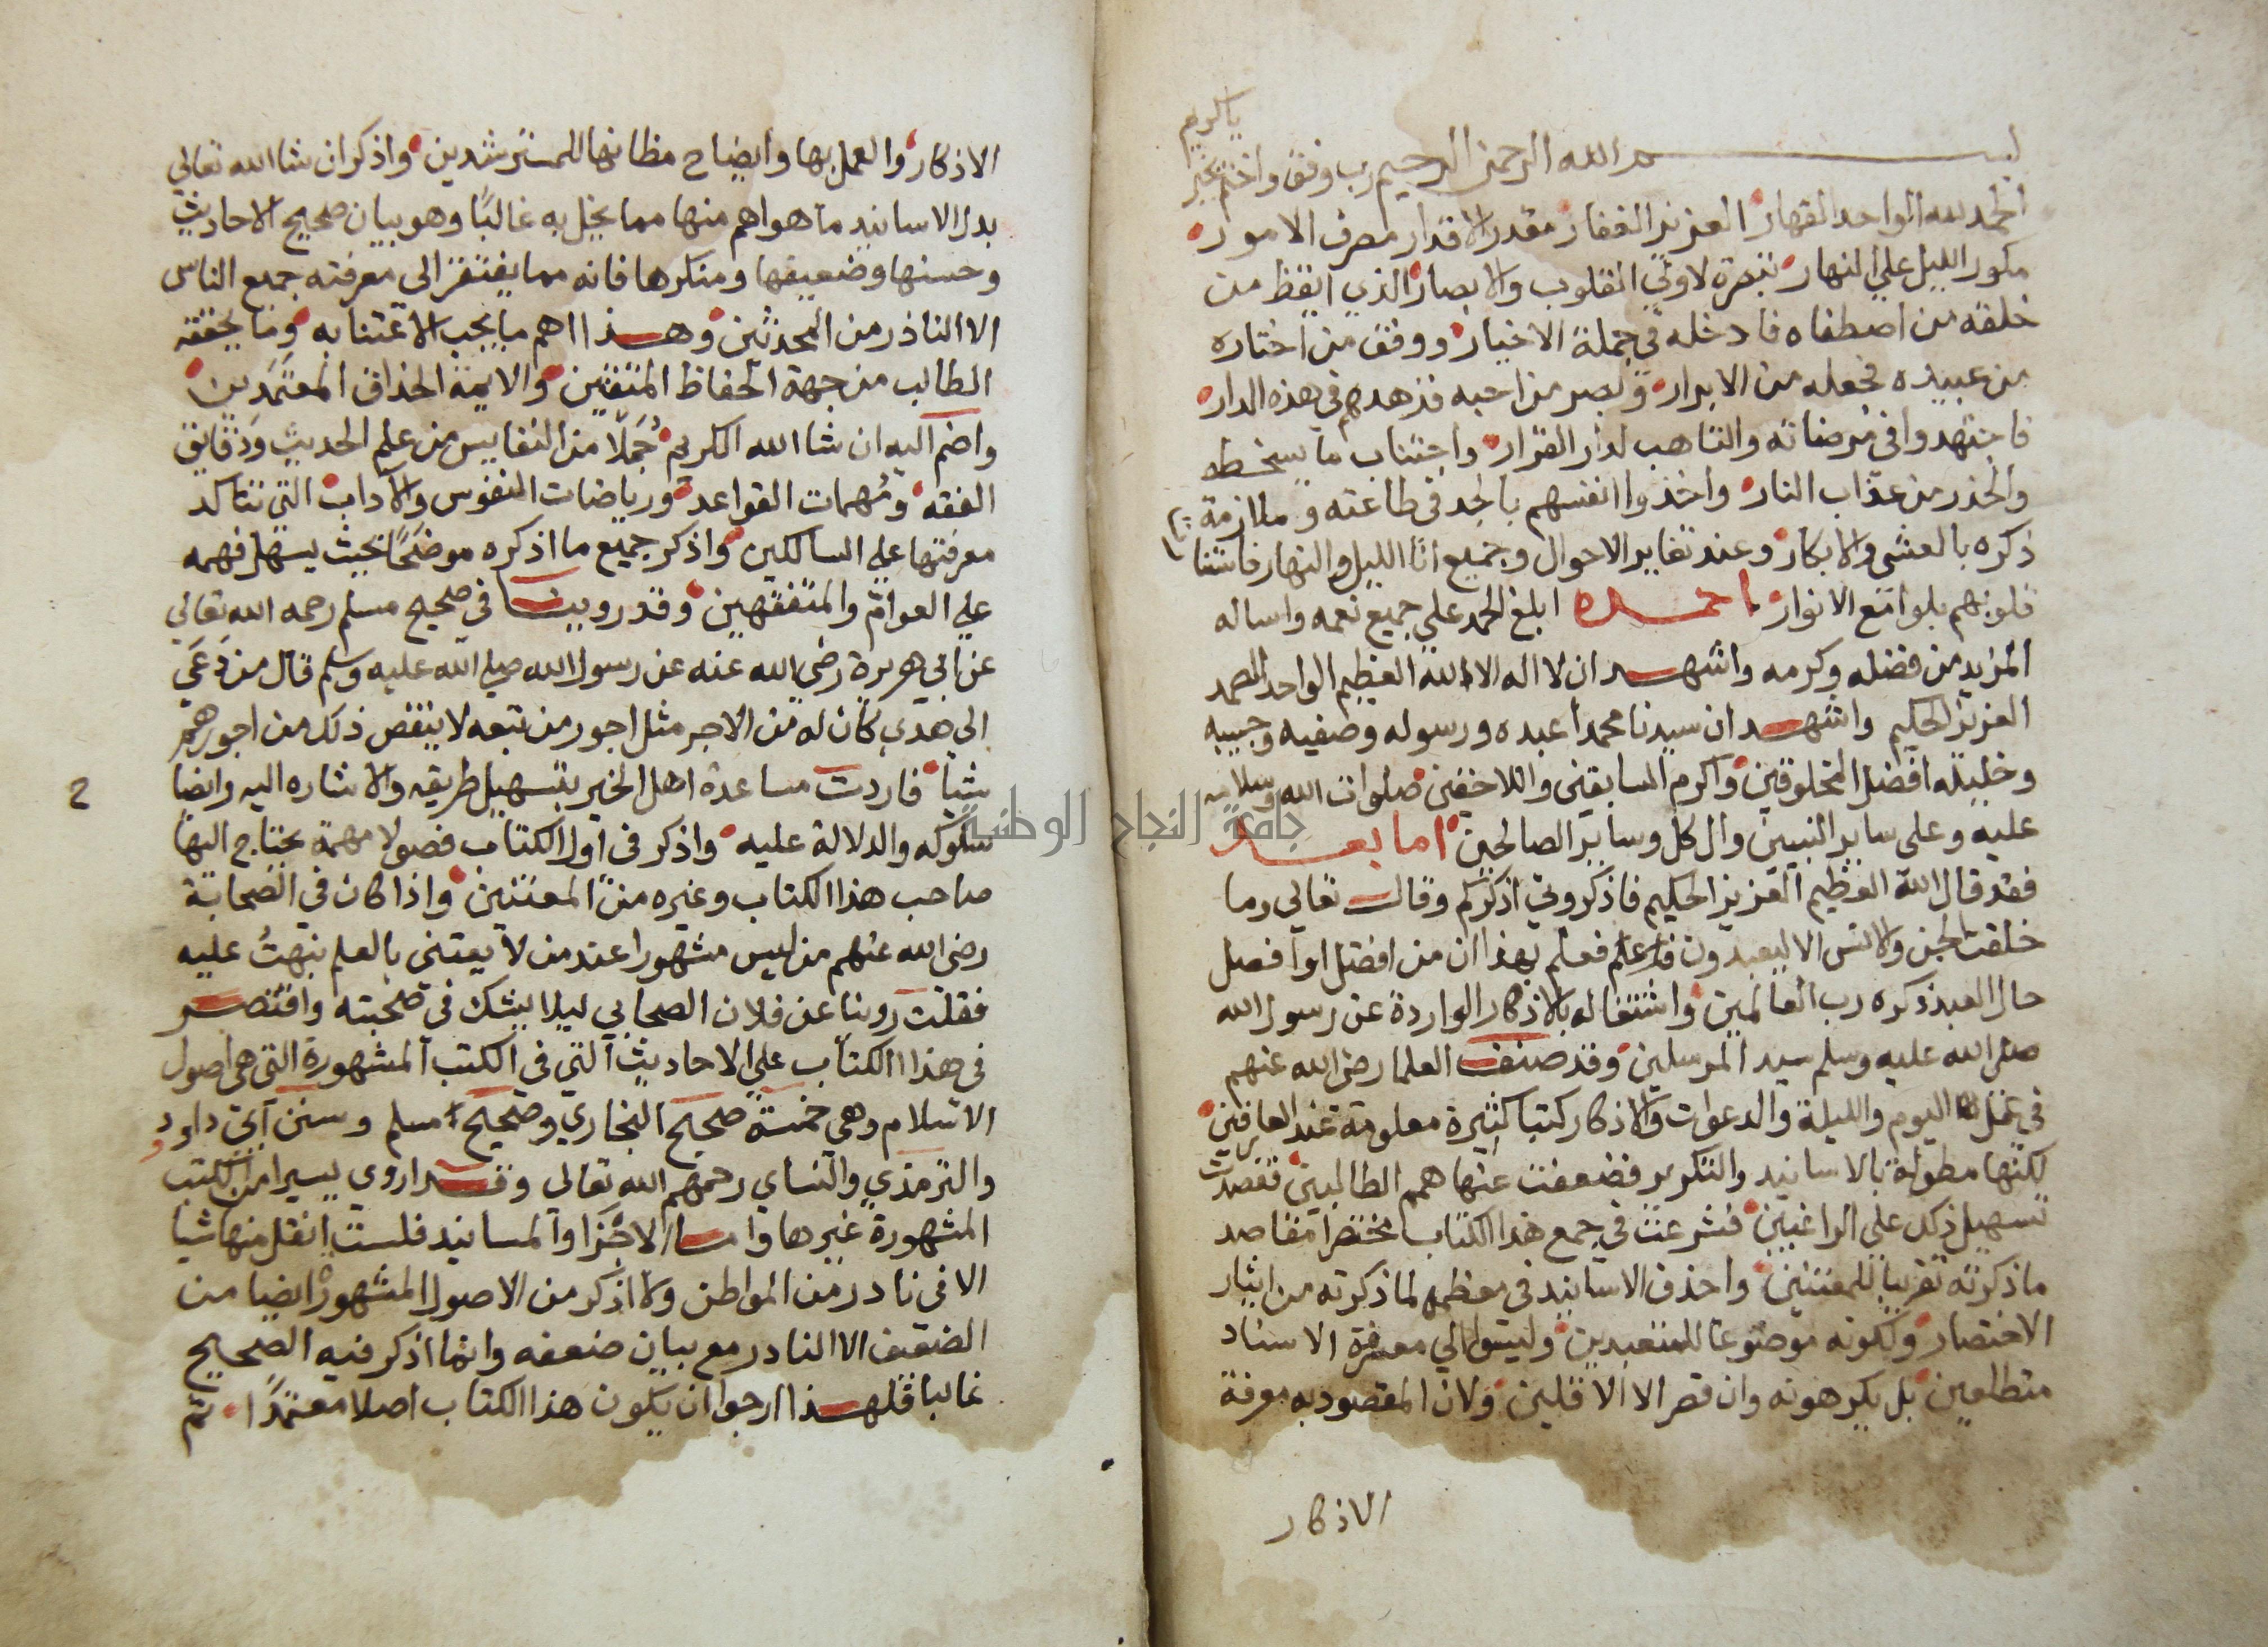 بسم الله الرحمن الرحيم رب وفق واختم بخير
يا كريم
الحمد لله الواحد القهار العزيز الغفار مقدر الاقدار مصرف الامور
مكور الليل علي النهار تبصرة لاولي القلوب والابصار الذي ايقظ من
خلقه من اصطفاه فادخله في جملة الاخيار ووفق من اختاره
من عبيده فجعله من الابرار وبصر من احبه فزهدهم في هذه الدار
فاجتهدوا في مرضاته والتاهب لدار القرار واجتناب ما يسخطه
والحذر من عذاب النار واخذوا انفسهم بالجد في طاعته وملازمة
ذكره بالعشي والابكار وعند تغاير الاحوال وجميع انا الليل والنهار فاستنا
قلوبهم بلوامع الانوار احمده ابلغ الحمد علي جميع نعمه واساله
المزيد من فضله وكرمه واشهد ان لا اله الا الله العظيم الواحد الصمد
العزيز الحكيم واشهد ان سيدنا محمدا عبده ورسوله وصفيه وحبيبه
وخليله افضل المخلوقين واكرم السابقين واللاحقين صلوات الله وسلامه
عليه وعلى ساير النبيين وال كل وساير الصالحين اما بعد
فقد قال الله العظيم العزيز الحكيم فاذكروني اذكركم وقال تعالي وما
خلقت الجن والانس الا ليعبدون فاعلم فعلم بهذا ان من افضل او افضل
حال العبد ذكره رب العالمين واشتغاله بالاذكار الواردة عن رسول الله
صلى الله عليه وسلم سيد المرسلين وقد صنف العلما رضي الله عنهم
في عمل اليوم والليلة والدعوات والاذكار كتبا كثيرة معلومة عند العارفين
لكنها مطولة بالاسانيد والتكرير فضعفت عنها همم الطالبين فقصدت
تسهيل ذلك على الراغبين فشرعت في جمع هذا الكتاب مختصرا مقاصد
ما ذكرته تقريبا للمعتنين واحذف الاسانيد في معظمه لما ذكرته من ايثار
الاختصار ولكونه موضوعا للمتعبدين وليسوا الي معرفة الاسناد
متطلعين بل يكرهونه وان قصر الا الاقلين ولان المقصود به معرفة
الاذكار
الاذكار والعمل بها وايضاح مظانها للمسترشدين واذكر ان شا الله تعالي
بدل الاسانيد ما هو اهم منها مما يخل به غالبًا وهو بيان صحيح الاحاديث
وحسنها وضعيفها ومنكرها فانه مما يفتقر الى معرفته جميع الناس
الا الناذر من المحدثين وهذا اهم ما يجب الاعتنا به وما يحققه
الطالب من جهة الحفاظ المتقنين والايمة الحذاق المعتمدين
واضم اليه ان شا الله الكريم جُملًا من النفايس من علم الحديث ودقايق
الفقه ومُهمات القواعد ورياضات النفوس والآداب التي تتاكد
معرفتها علي السالكين واذكر جميع ما اذكره موضحًا بحيث يسهل فهمه
علي العوام والمتفقهين وقد روينا في صحيح مسلم رحمه الله تعالي
عن ابي هريرة رضى الله عنه عن رسول الله صلى الله عليه وسلم قال من دَعَي
الى هدي كان له من الاجر مثل اجور من تبعه لا ينقص ذلك من اجورهم
شيا فاردت مساعدة اهل الخير بتسهيل طريقه والاشاره اليه وايضا
سلوكه والدلالة عليه واذكر في اول الكتاب فصولا مهمة يحتاج اليها
صاحب هذا الكتاب وغيره من المعتنين واذا كان في الصحابة
رضى الله عنهم من ليس مشهورا عند من لا يعتنى بالعلم نبهتُ عليه
فقلت روينا عن فلان الصحابي ليلا يشك في صحبته واقتصر
في هذا الكتاب علي الاحاديث التي في الكتب المشهورة التي هي اصول
الاسلام وهي خمسة صحيح البخاري وصحيح مسلم وسنن ابي داود
والترمذي والنساي رحمهم الله تعالى وقد اروي يسيرا من الكتب
المشهورة غيرها واما الاجزا والمسانيد فلست انقل منها شيا
الا في نادر من المواطن ولا اذكر من الاصول المشهورة ايضا من
الضعيف الا النادر مع بيان ضعفه وانما اذكر فيه الصحيح
غالبا فلهذا ارجوا ان يكون هذا الكتاب اصلا معتمدًا ثم
2
جامعة النجاح الوطنية